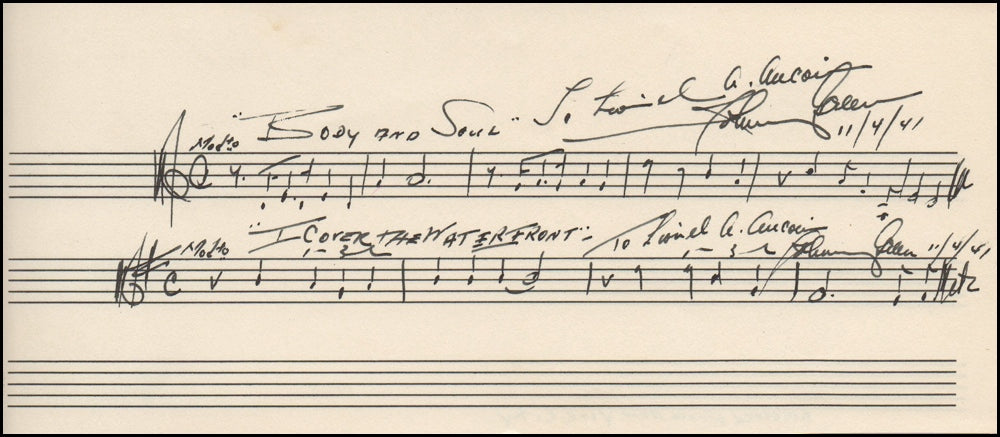 "Body and Soul" To Lionel A. Aucoin
Johnny Green
11/4/41
Modto
"I Cover the Waterfront"- To Lionel A. Aucoin
Johnny Green 11/4/41
Modto
3 3
C etc